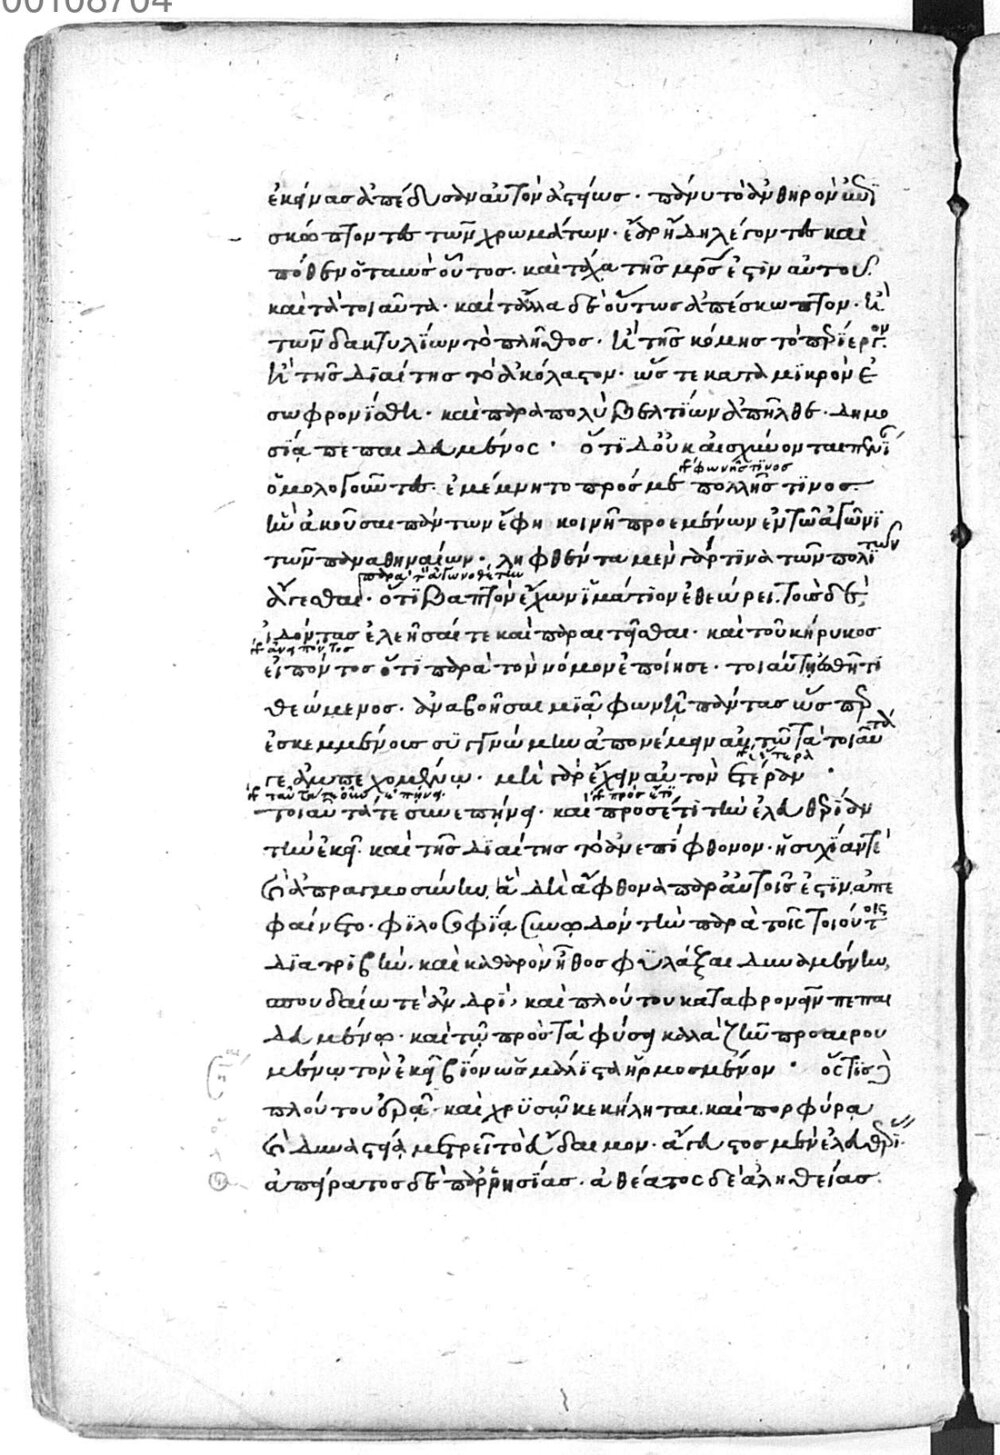 00108704
ἐκείνας ἀπέδυσαν αὐτὸν ἀστείως· πάνυ τὸ ἀνθηρὸν
σκώπτοντες τῶν χρωμάτων· ἔαρ ἤδη λέγοντες καὶ
πόθεν ὁ ταὼς οὗτος· καὶ τάχα τῆς μητρός ἐστιν αὐτοῦ·
καὶ τὰ τοιαῦτα· καὶ τἆλλα δὲ οὕτως ἀπέσκωπτον· ἢ
τῶν δακτυλίων τὸ πλῆθος· ἢ τῆς κόμης τὸ περίεργον·
ἢ τῆς διαίτης τὸ ἀκόλαστον· ὥστε κατὰ μικρὸν ἐ
σωφρονίσθη· καὶ παρὰ πολὺ βελτίων ἀπῆλθε· δημο
σίᾳ πεπαιδευμένος· ὅτι δ' οὐκ αἰσχύνονται πενίαν
φωνῆς τινος
ὁμολογοῦντες· ἐμέμνητο πρός με πολλῆς τινος
ἣν ἀκοῦσαι πάντων ἔφη κοινῇ προεμένων ἐν τῷ ἀγῶνι
τῶν παναθηναίων· ληφθέντα μὲν γάρ τινα τῶν πολιτῶν
παρὰ τὸν ἀγωνοθέτην
ἄγεσθαι· ὅτι βαπτὸν ἔχων ἱμάτιον ἐθεώρει· τοὺς δὲ,
ἰδόντας ἐλεῆσαί τε καὶ παραιτεῖσθαι· καὶ τοῦ κήρυκος
ἀνειπόντος
εἰπόντος ὅτι παρὰ τὸν νόμον ἐποίησε· τοιαύτῃ ἐσθῆτι
θεώμενος· ἀναβοῆσαι μιᾷ φωνῇ πάντας ὥσπερ
ἐσκεμμένους συγγνώμην ἀπονέμειν αὐτῷ τὰ τοιαῦτά
ἕτερα
γε ἀμπεχομένῳ· μὴ γὰρ ἔχειν αὐτὸν ἕτερον·
τοιαῦτά τε συνεπῄνει· καὶ προσέτι τὴν ἐλευθερίαν
τὴν ἐκεῖ· καὶ τῆς διαίτης τὸ ἀνεπίφθονον· ἡσυχίαν τε
καὶ ἀπραγμοσύνην, ἃ δὴ ἄφθονα παρ' αὐτοῖς ἐστιν, ἀπε
φαίνετο· φιλοσοφίᾳ συνῳδὸν τὴν παρὰ τοῖς τοιούτοις
διατριβήν· καὶ καθαρὸν ἦθος φυλάξαι δυναμένην,
σπουδαίῳ τε ἀνδρί, καὶ πλούτου καταφρονεῖν πεπαι
δευμένῳ· καὶ τῷ πρὸς τὰ φύσει καλὰ ζῆν προαιρου
μένῳ τὸν ἐκεῖ βίον ὡς μάλιστα ἡρμοσμένον· ὅστις δὲ
πλούτου ἐρᾷ· καὶ χρυσῷ κεκήληται· καὶ πορφύρᾳ
καὶ δυναστείᾳ μετρεῖ τὸ εὔδαιμον· ἄγευστος μὲν ἐλευθερίας·
ἀπείρατος δὲ παρρησίας· ἀθέατος δὲ ἀληθείας·